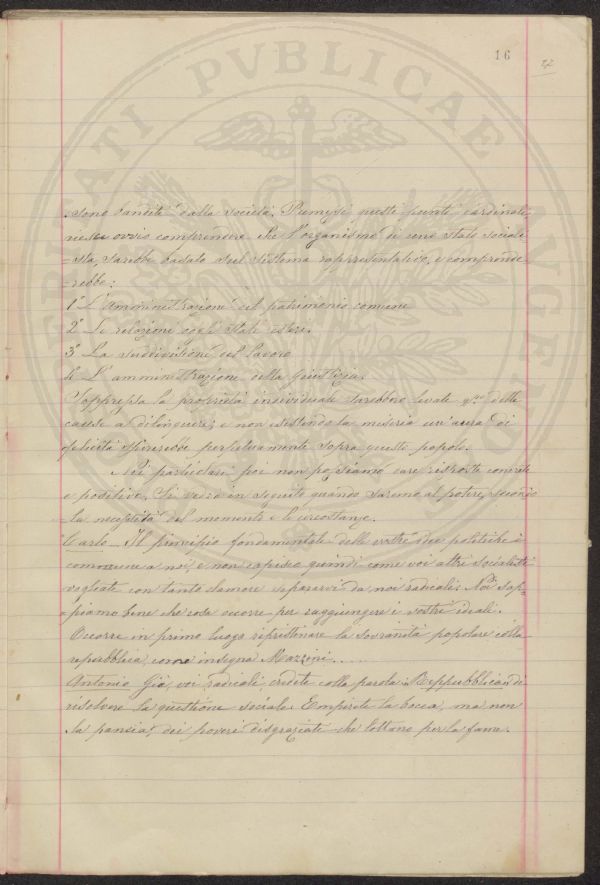 16
22
sono bandite dalla società. Premessi questi punti cardinali,
riesce ovvio comprendere che l'organismo di uno stato sociali=
=sta, sarebbe basato sul sistema rappresentativo, e comprende=
=rebbe:
1° L'amministrazione del patrimonio comune
2° Le relazioni cogli Stati esteri.
3° La suddivisione del lavoro
4° L'amministrazione della giustizia.
Soppressa la proprietà individuale sarebbero levate delle
cause a dilinquere; e non esistendo la miseria un'aura di
felicità spirerebbe perpetuamente sopra questo popolo.
Nei particolari poi non possiamo dare risposte concrete
e positive. Si vedrà in seguito quando saremo al potere, secondo
la necessità del momento e le circostanze.
Carlo - Il principio fondamentale delle vostre idee politiche è
comune a noi, e non capisco quindi come voi altri socialisti
vogliate con tanto clamore separarvi da noi radicali. Noi sap=
=piamo bene che cosa occorre per raggiungere i vostri ideali.
Occorre in primo luogo ripristinare la sovranità popolare colla
repubblica, come insegna Mazzini.....
Antonio Già, voi radicali, credete colla parola "Reppubblica" di
risolvere la questione sociale. Empirete la bocca, ma non
la pansia, dei poveri disgraziati che lottano per la fame.
PVBLICAE